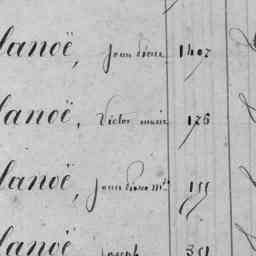 lanoë, Jean Pierre 1407
lanoë, Victor marie 176
lanoë, Jean Pierre m^ie 155
lanoë, Joseph 351